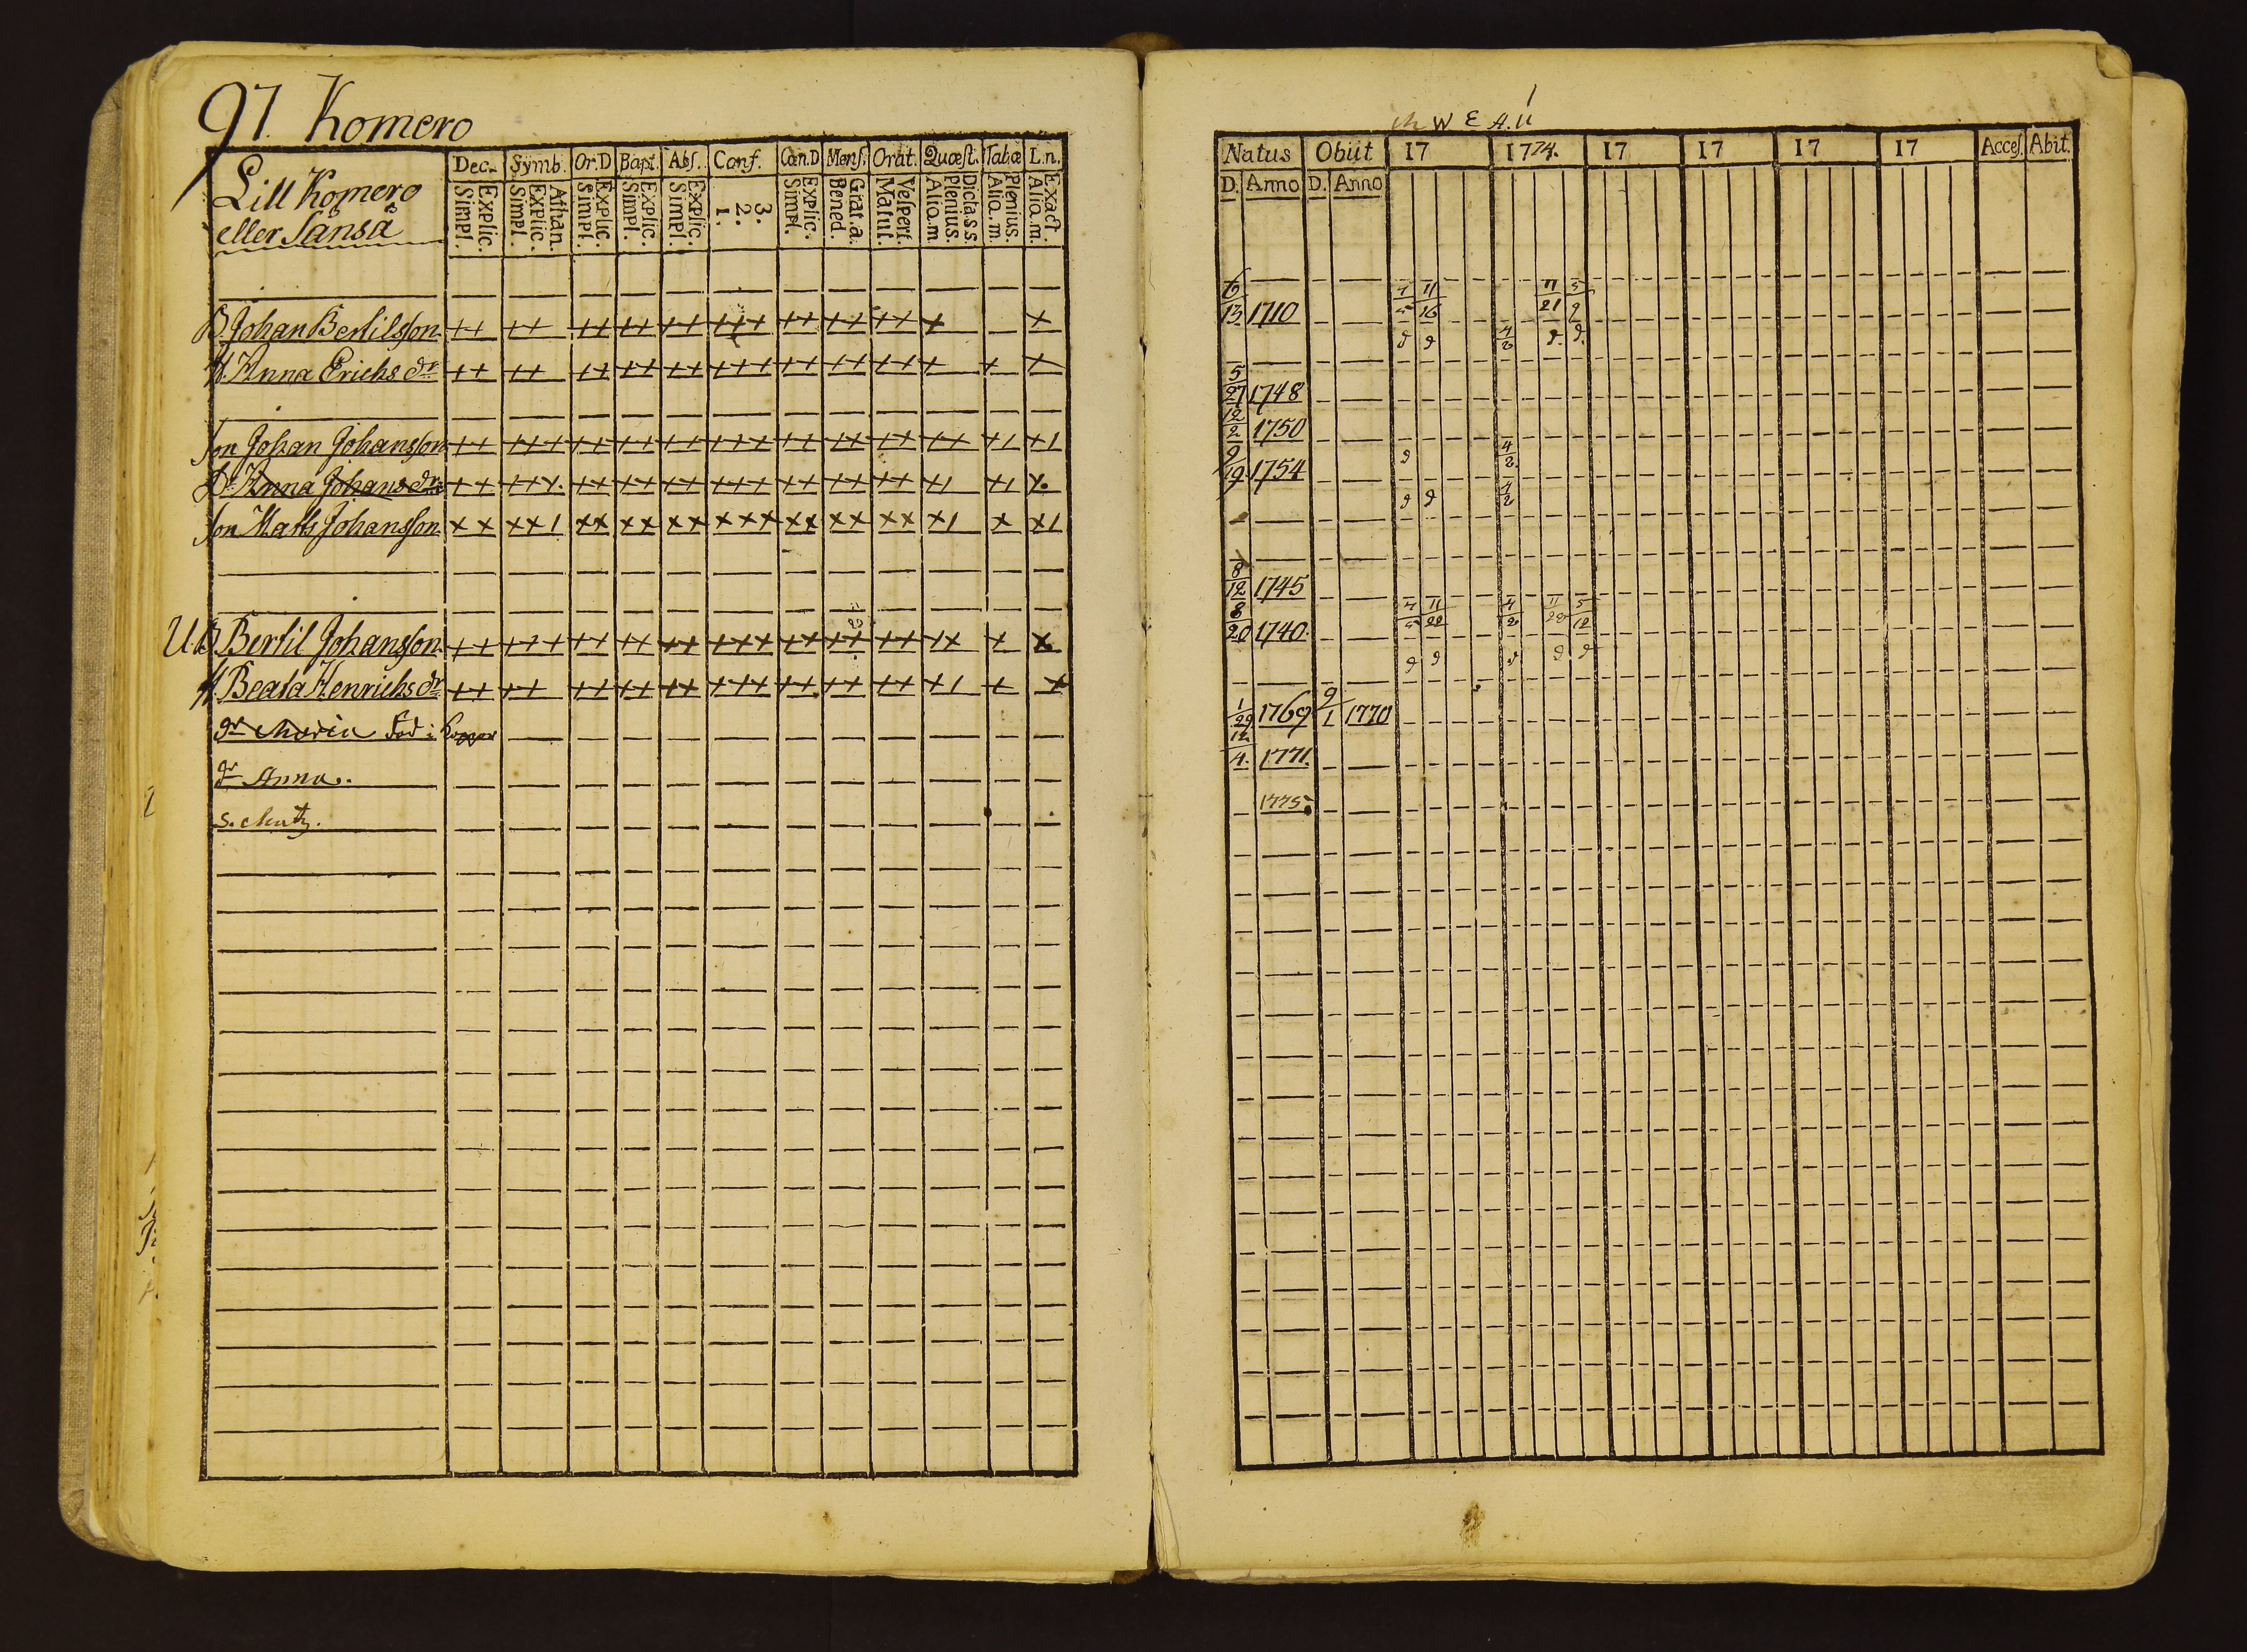 97. Komero
Lill Komero
eller Sånså
Dec. Symb. Or.D Bapt. Abs. Conf. Cœn.D Mens. Orat. Quæst. Tabæ L.n.
Explic. Simpl. Athan. Explic. Simpl. Explic. Simpl. Explic. Simpl. Explic. Simpl. 3. 2. 1. Explic. Simpl. Grat.a. Bened. Vespert. Matut. Dicta.s.s. Plenius. Aliq.m. Plenius. Aliq.m. Exact. Aliq.m.
B. Johan Bertilsson
H. Anna Erichs dr
Son Johan Johansson
Dr Anna Johans dr
Son Matts Johansson
U.B Bertil Johansson
H. Beata Henrichs dr
dr Maria Fod:
dr Anna.
S. Matz.
W E A.
Natus Obiit 17 1774. 17 17 17 17 Acces. Abit.
D. Anno D. Anno
6/13 1710 4/5 11/16 11/21 5/9
4/2
5/27 1748
12/2 1750
9/19 1754 4/2
4/2
8/12 1745
8/20 1740 4/5 11/22 4/2 11/20 5/12
1/29 1769 9/1 1770
12/4. 1771
1775